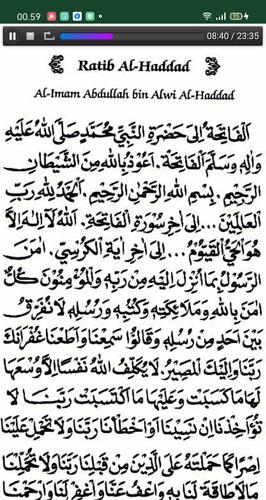 00.59
08:40 / 23:35
Ratib Al-Haddad
Al-Imam Abdullah bin Alwi Al-Haddad
اَلْفَاتِحَةُ إِلَى حَضْرَةِ النَّبِيِّ مُحَمَّدٍ صَلَّى اللهُ عَلَيْهِ
وَاٰلِهِ وَسَلَّمَ اَلْفَاتِحَةَ. اَعُوْذُ بِاللهِ مِنَ الشَّيْطَانِ
الرَّجِيْمِ. بِسْمِ اللهِ الرَّحْمٰنِ الرَّحِيْمِ. اَلْحَمْدُ لِلّٰهِ رَبِّ
الْعَالَمِيْنَ...إِلَى اٰخِرِ سُوْرَةِ الْفَاتِحَةِ. اَللهُ لَآ اِلٰهَ اِلَّا
هُوَ الْحَيُّ الْقَيُّوْمُ...إِلَى اٰخِرِ اٰيَةِ الْكُرْسِيِّ. اٰمَنَ
الرَّسُوْلُ بِمَا اُنْزِلَ اِلَيْهِ مِنْ رَبِّهِ وَالْمُؤْمِنُوْنَ كُلٌّ
اٰمَنَ بِاللهِ وَمَلَائِكَتِهِ وَكُتُبِهِ وَرُسُلِهِ لَا نُفَرِّقُ
بَيْنَ اَحَدٍ مِنْ رُسُلِهِ وَقَالُوْا سَمِعْنَا وَاَطَعْنَا غُفْرَانَكَ
رَبَّنَا وَاِلَيْكَ الْمَصِيْرُ. لَا يُكَلِّفُ اللهُ نَفْسًا اِلَّا وُسْعَهَا
لَهَا مَا كَسَبَتْ وَعَلَيْهَا مَا اكْتَسَبَتْ رَبَّنَا لَا
تُؤَاخِذْنَا اِنْ نَسِيْنَا اَوْ اَخْطَأْنَا رَبَّنَا وَلَا تَحْمِلْ عَلَيْنَا
اِصْرًا كَمَا حَمَلْتَهُ عَلَى الَّذِيْنَ مِنْ قَبْلِنَا رَبَّنَا وَلَا تُحَمِّلْنَا
مَا لَا طَاقَةَ لَنَا بِهِ وَاعْفُ عَنَّا وَاغْفِرْ لَنَا وَارْحَمْنَا